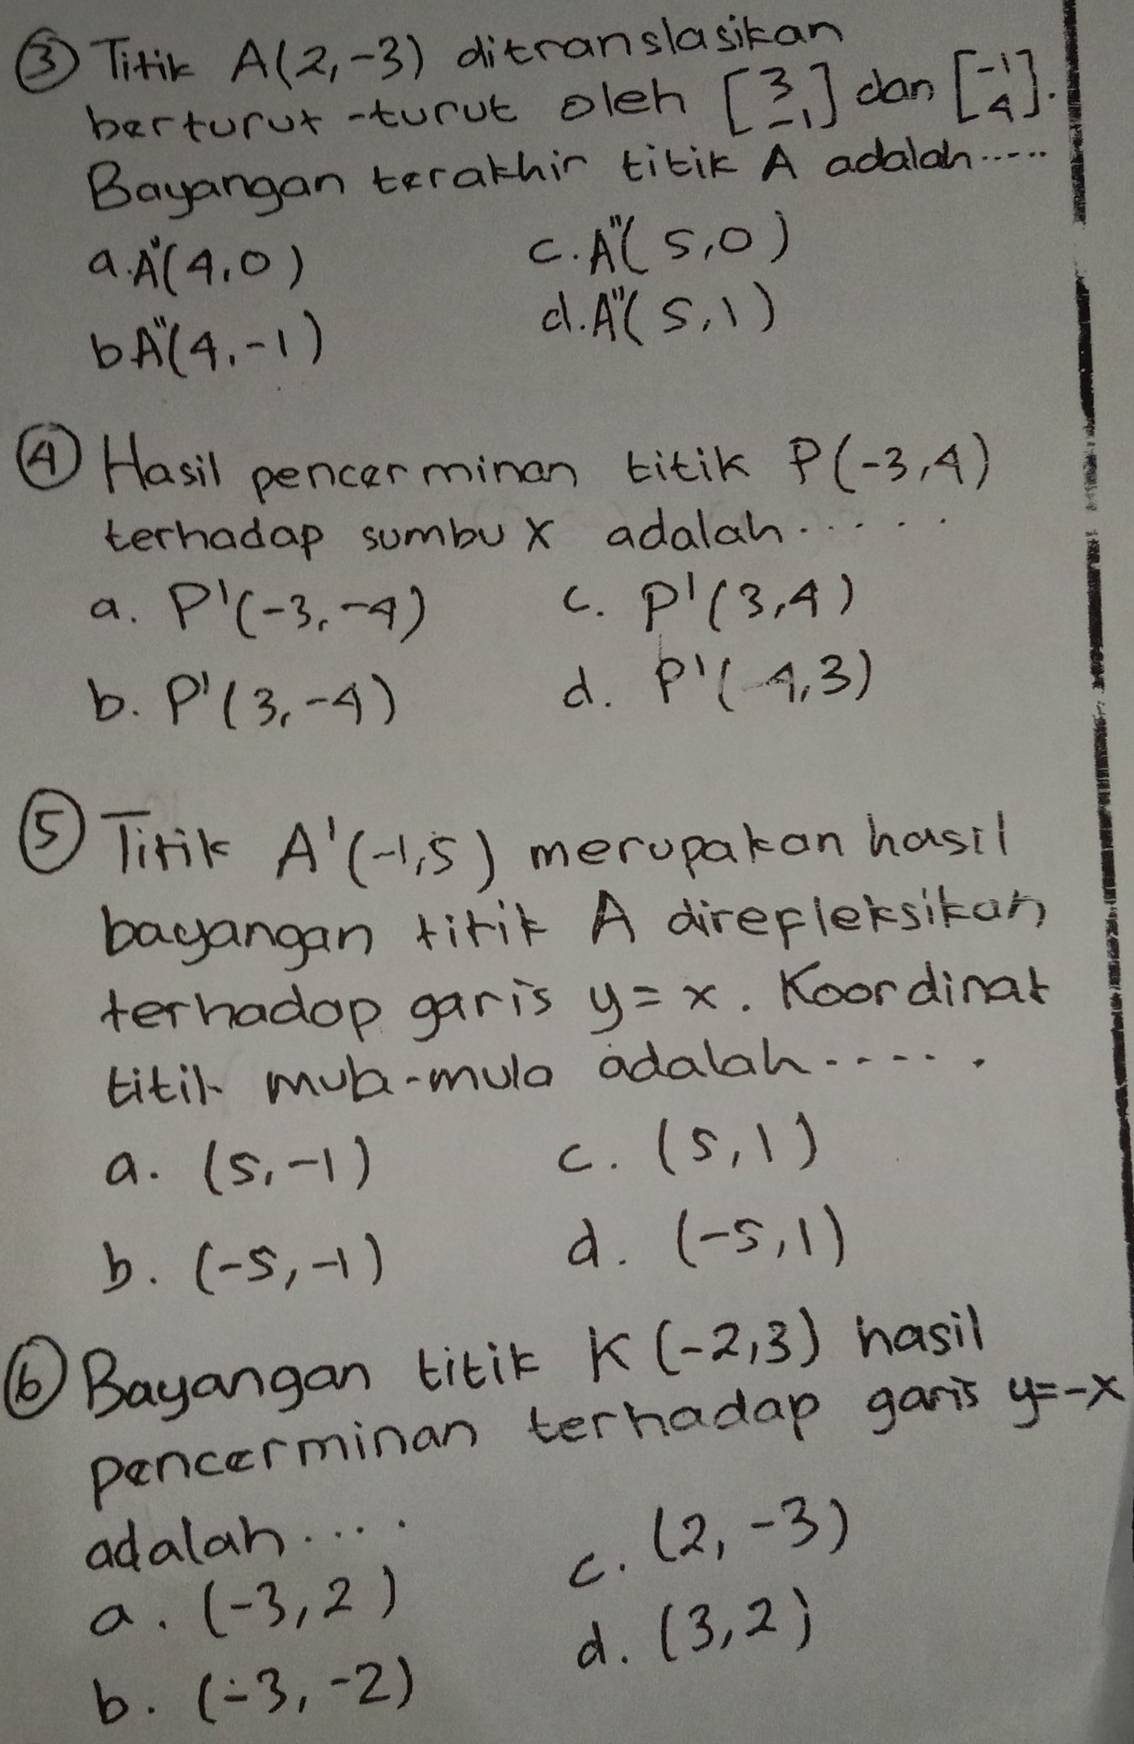 ③ Titik A(2,-3) ditranslasikan
berturut-turut oleh [3 -1] dan [-1 4].
Bayangan terakhir titik A adalah.....
a. A"(4,0) c. A"(5,0)
b A"(4,-1) d. A"(5,1)
④ Hasil pencerminan titik P(-3,4)
terhadap sumbu X adalah......
a. P'(-3,-4) c. P'(3,4)
b. P'(3,-4) d. P'(-4,3)
⑤ Titik A'(-1,5) merupakan hasil
bayangan titik A direfleksikan
terhadap garis y=x. Koordinat
titik mula-mula adalah......
a. (5,-1) c. (5,1)
b. (-5,-1) d. (-5,1)
⑥ Bayangan titik K(-2,3) hasil
pencerminan terhadap garis y=-x
adalah....
a. (-3,2) c. (2,-3)
b. (-3,-2) d. (3,2)